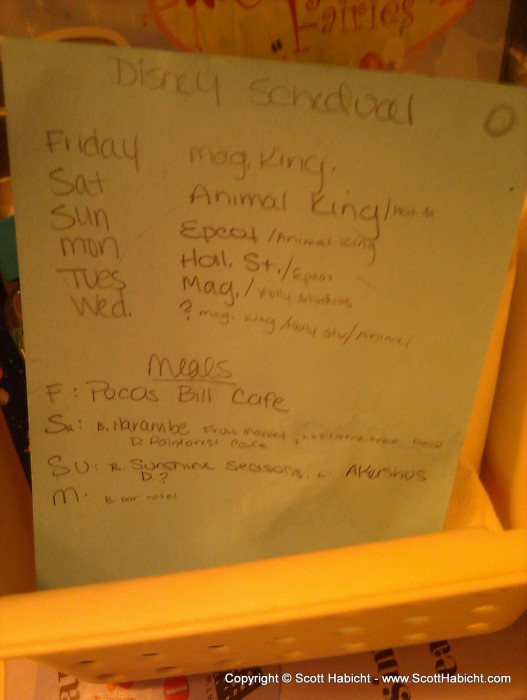 Fairies
Disney Schedual
Friday Mag. King.
Sat Animal King/
Sun Epcot/Animal King
Mon Hol. St./Epcot
Tues Mag./Holly Studios
Wed. ? mag. King/Holly Stu/Animal
Meals
F: Pocos Bill Cafe
Sa: B. Harambe Fruit Market,
D. Rainforest Cafe
SU: B. Sunshine Seasons, L. Akershus
D.?
M. B. our hotel
Copyright © Scott Habicht - www.ScottHabicht.com